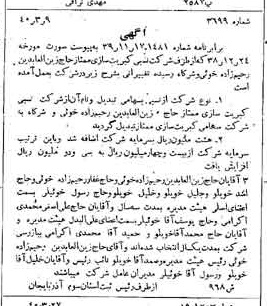 شماره ۳۶۹۹ ۹ر۳ر۴۰
آگهی
برابر نامه شماره ۱۲٫۱۴۸۱ر۱۱ر۳۹ به پیوست صورت مورخه
۲۴ر۱۲ر۳۸ که از طرف شرکت نسبی کبریت سازی ممتاز حاج زین العابدین
رحیم زاده خوئی و شرکاء رسیده تغییراتی بشرح زیر در شرکت بعمل آمده
است
۱. نوع شرکت از نسبی بسهامی تبدیل و نام آن از شرکت نسبی
کبریت سازی ممتاز حاج زین العابدین رحیم زاده خوئی و شرکاء به
شرکت سهامی کبریت سازی ممتاز تبدیل گردید
۲. هشت ملیون ریال بسرمایه شرکت اضافه شد و باین ترتیب
سرمایه شرکت از بیست و چهار ملیون ریال به سی و دو ملیون ریال
افزایش یافت
۳ آقایان حاج زین العابدین رحیم زاده خوئی و حاج غفار رحیم زاده خوئی و حاج
خویلو و جلیل خویلو و خلیل خویلو و حاج رسول خوئیلر بسمت
اعضای اصلی هیئت مدیره بمدت سه سال و آقایان حاج علی اصغر محمدی
اکرامی و حاج یوسف آقا خوئیلر بسمت اعضای علی البدل هیئت مدیره و
آقایان حاج محمد آقا خویلو و حمید آقا محمدی ببازرسی
شرکت بمدت یکسال انتخاب شده اند و آقای حاج زین العابدین رحیم زاده
خوئی رئیس هیئت مدیره و صمد آقا خویلو نائب رئیس و آقایان خلیل آقا
خویلو و رسول آقا خوئیلر مدیران عامل شرکت میباشند
ش ۹۶۸ از طرف رئیس ثبت استان سوم آذربایجان